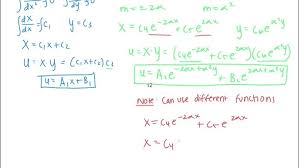 ∫dx/dx = ∫0 ∫dy = ∫0
X = C₁x + C₂ y = C₃
U = X·Y = (C₁x + C₂) C₃
u = A₁x + B₁
m = 2α m = α²
X = C₄e^(-2αx) + C₅e^(2αx) y = C₆e^(α²y)
U = X·Y = (C₄e^(-2αx) + C₅e^(2αx))(C₆e^(α²y))
u = A₁e^(-2αx+α²y) + B₁e^(2αx+α²y)
12
Note: Can use different functions
X = C₄e^(-2αx) + C₅e^(2αx)
X = C₄